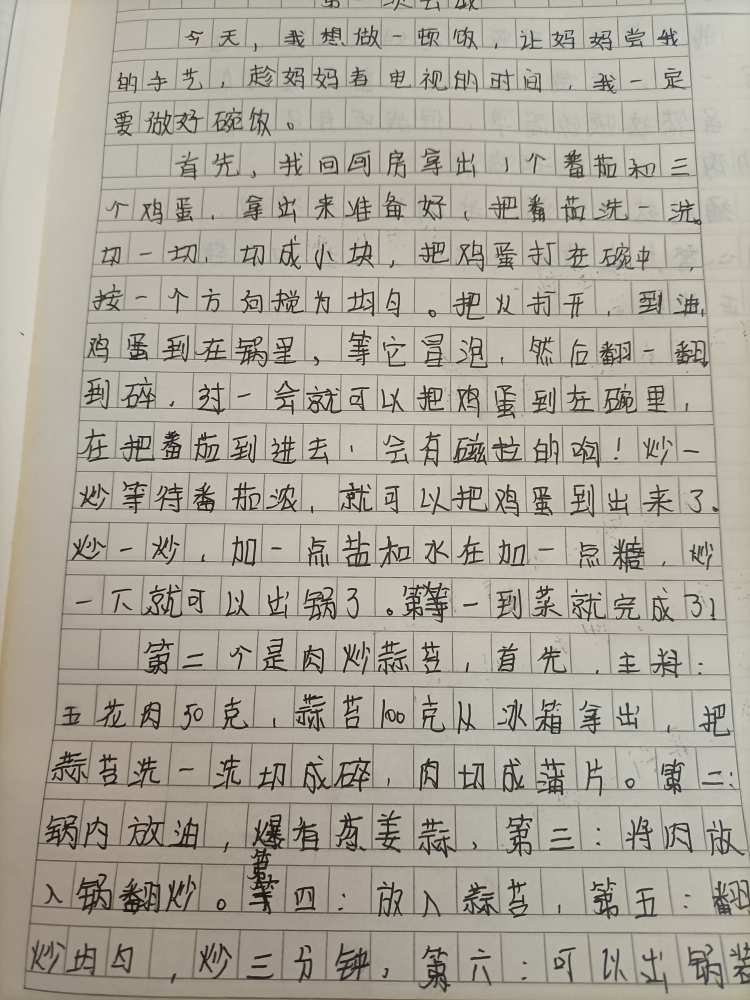 今天，我想做一顿饭，让妈妈尝我
的手艺，趁妈妈看电视的时间，我一定
要做好碗饭。
首先，我回画房拿出1个番茄和三
个鸡蛋，拿出来准备好，把番茄洗一洗。
切一切，切成小块，把鸡蛋打在碗中，
按一个方向搅为均匀。把火打开，到油，
鸡蛋到在锅里，等它冒泡，然后翻一翻
到碎，过一会就可以把鸡蛋到在碗里，
在把番茄到进去，会有磁拉的响！炒一
炒等待番茄浓，就可以把鸡蛋到出来了。
炒一炒，加一点盐和水在加一点糖，炒
一下就可以出锅了。第一到菜就完成了！
第二个是肉炒蒜苔，首先，主料：
五花肉50克，蒜苔100克从冰箱拿出，把
蒜苔洗一洗切成碎，肉切成蒲片。第二：
锅内放油，爆有葱姜蒜，第三：将肉放
入锅翻炒。第四：放入蒜苔，第五：翻
炒均匀，炒三分钟，第六：可以出锅装